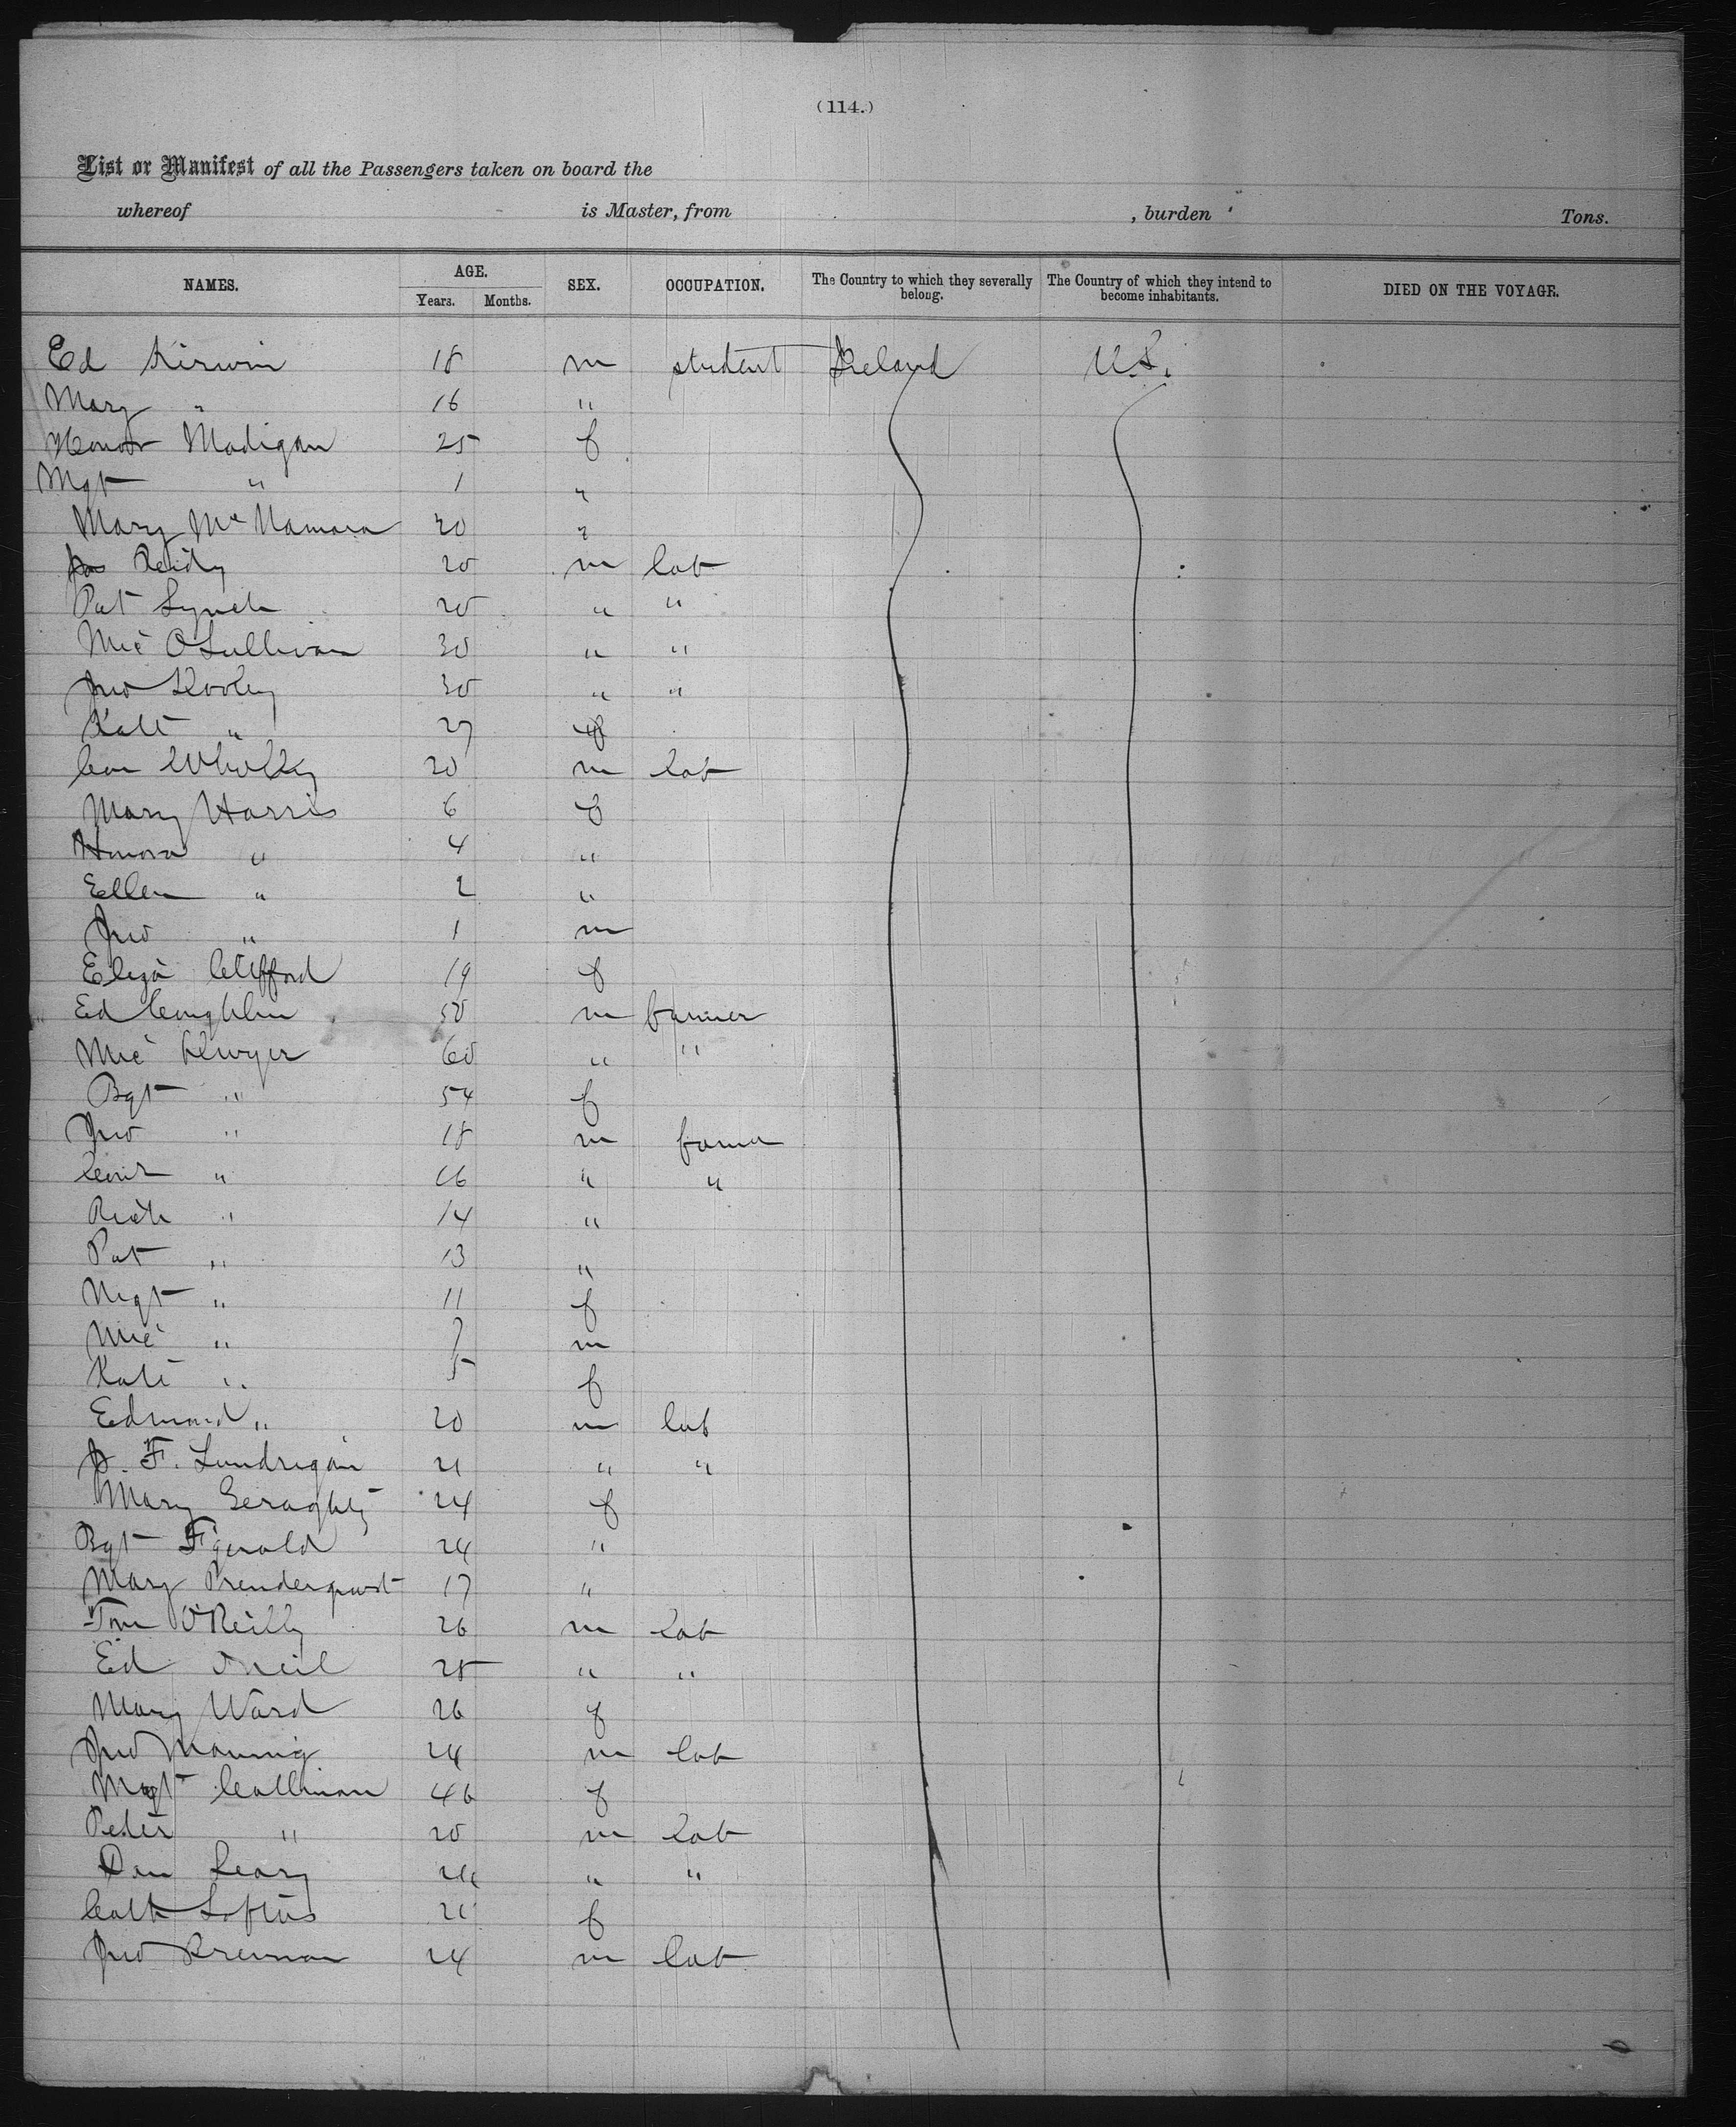 (114.)
List or Manifest of all the Passengers taken on board the
whereof is Master, from , burden Tons.
NAMES. AGE. Years. Months. SEX. OCCUPATION. The Country to which they severally belong. The Country of which they intend to become inhabitants. DIED ON THE VOYAGE.
Ed Kirwin 18 m student Ireland U.S.
Mary " 16 "
Honor Madigan 25 f
Mgt " 1 "
Mary McNamara 20 "
Jas Reidy 20 m lab
Pat Lynch 20 " "
Mic O'Sullivan 30 " "
Jno 30 " "
Kate " 27 f
Con Wholley 20 m Lab
Mary Harris 6 f
Honora " 4 "
Ellen " 2 "
Jno " 1 m
Eliza Clifford 19 f
Ed Coughlin 50 m farmer
Mic Dwyer 60 " "
Bgt " 54 f
Jno " 18 m farmer
" 16 " "
Rich " 14 "
Pat " 13 "
Mgt " 11 f
Mic " 7 m
Kate " 5 f
Edmond " 20 m lab
J. F. Lundrigan 21 " "
Mary Geraghty 24 f
Bgt F'gerald 24 "
Mary Prendergast 17 "
Tom O'Reilly 26 m Lab
Ed ONeil 25 " "
Mary Ward 26 f
Jno Manning 24 m lab
Mgt Callinan 46 f
Peter " 20 m Lab
Dan Leary 24 " "
Cath Loftus 21 f
Jno Brennan 24 m lab